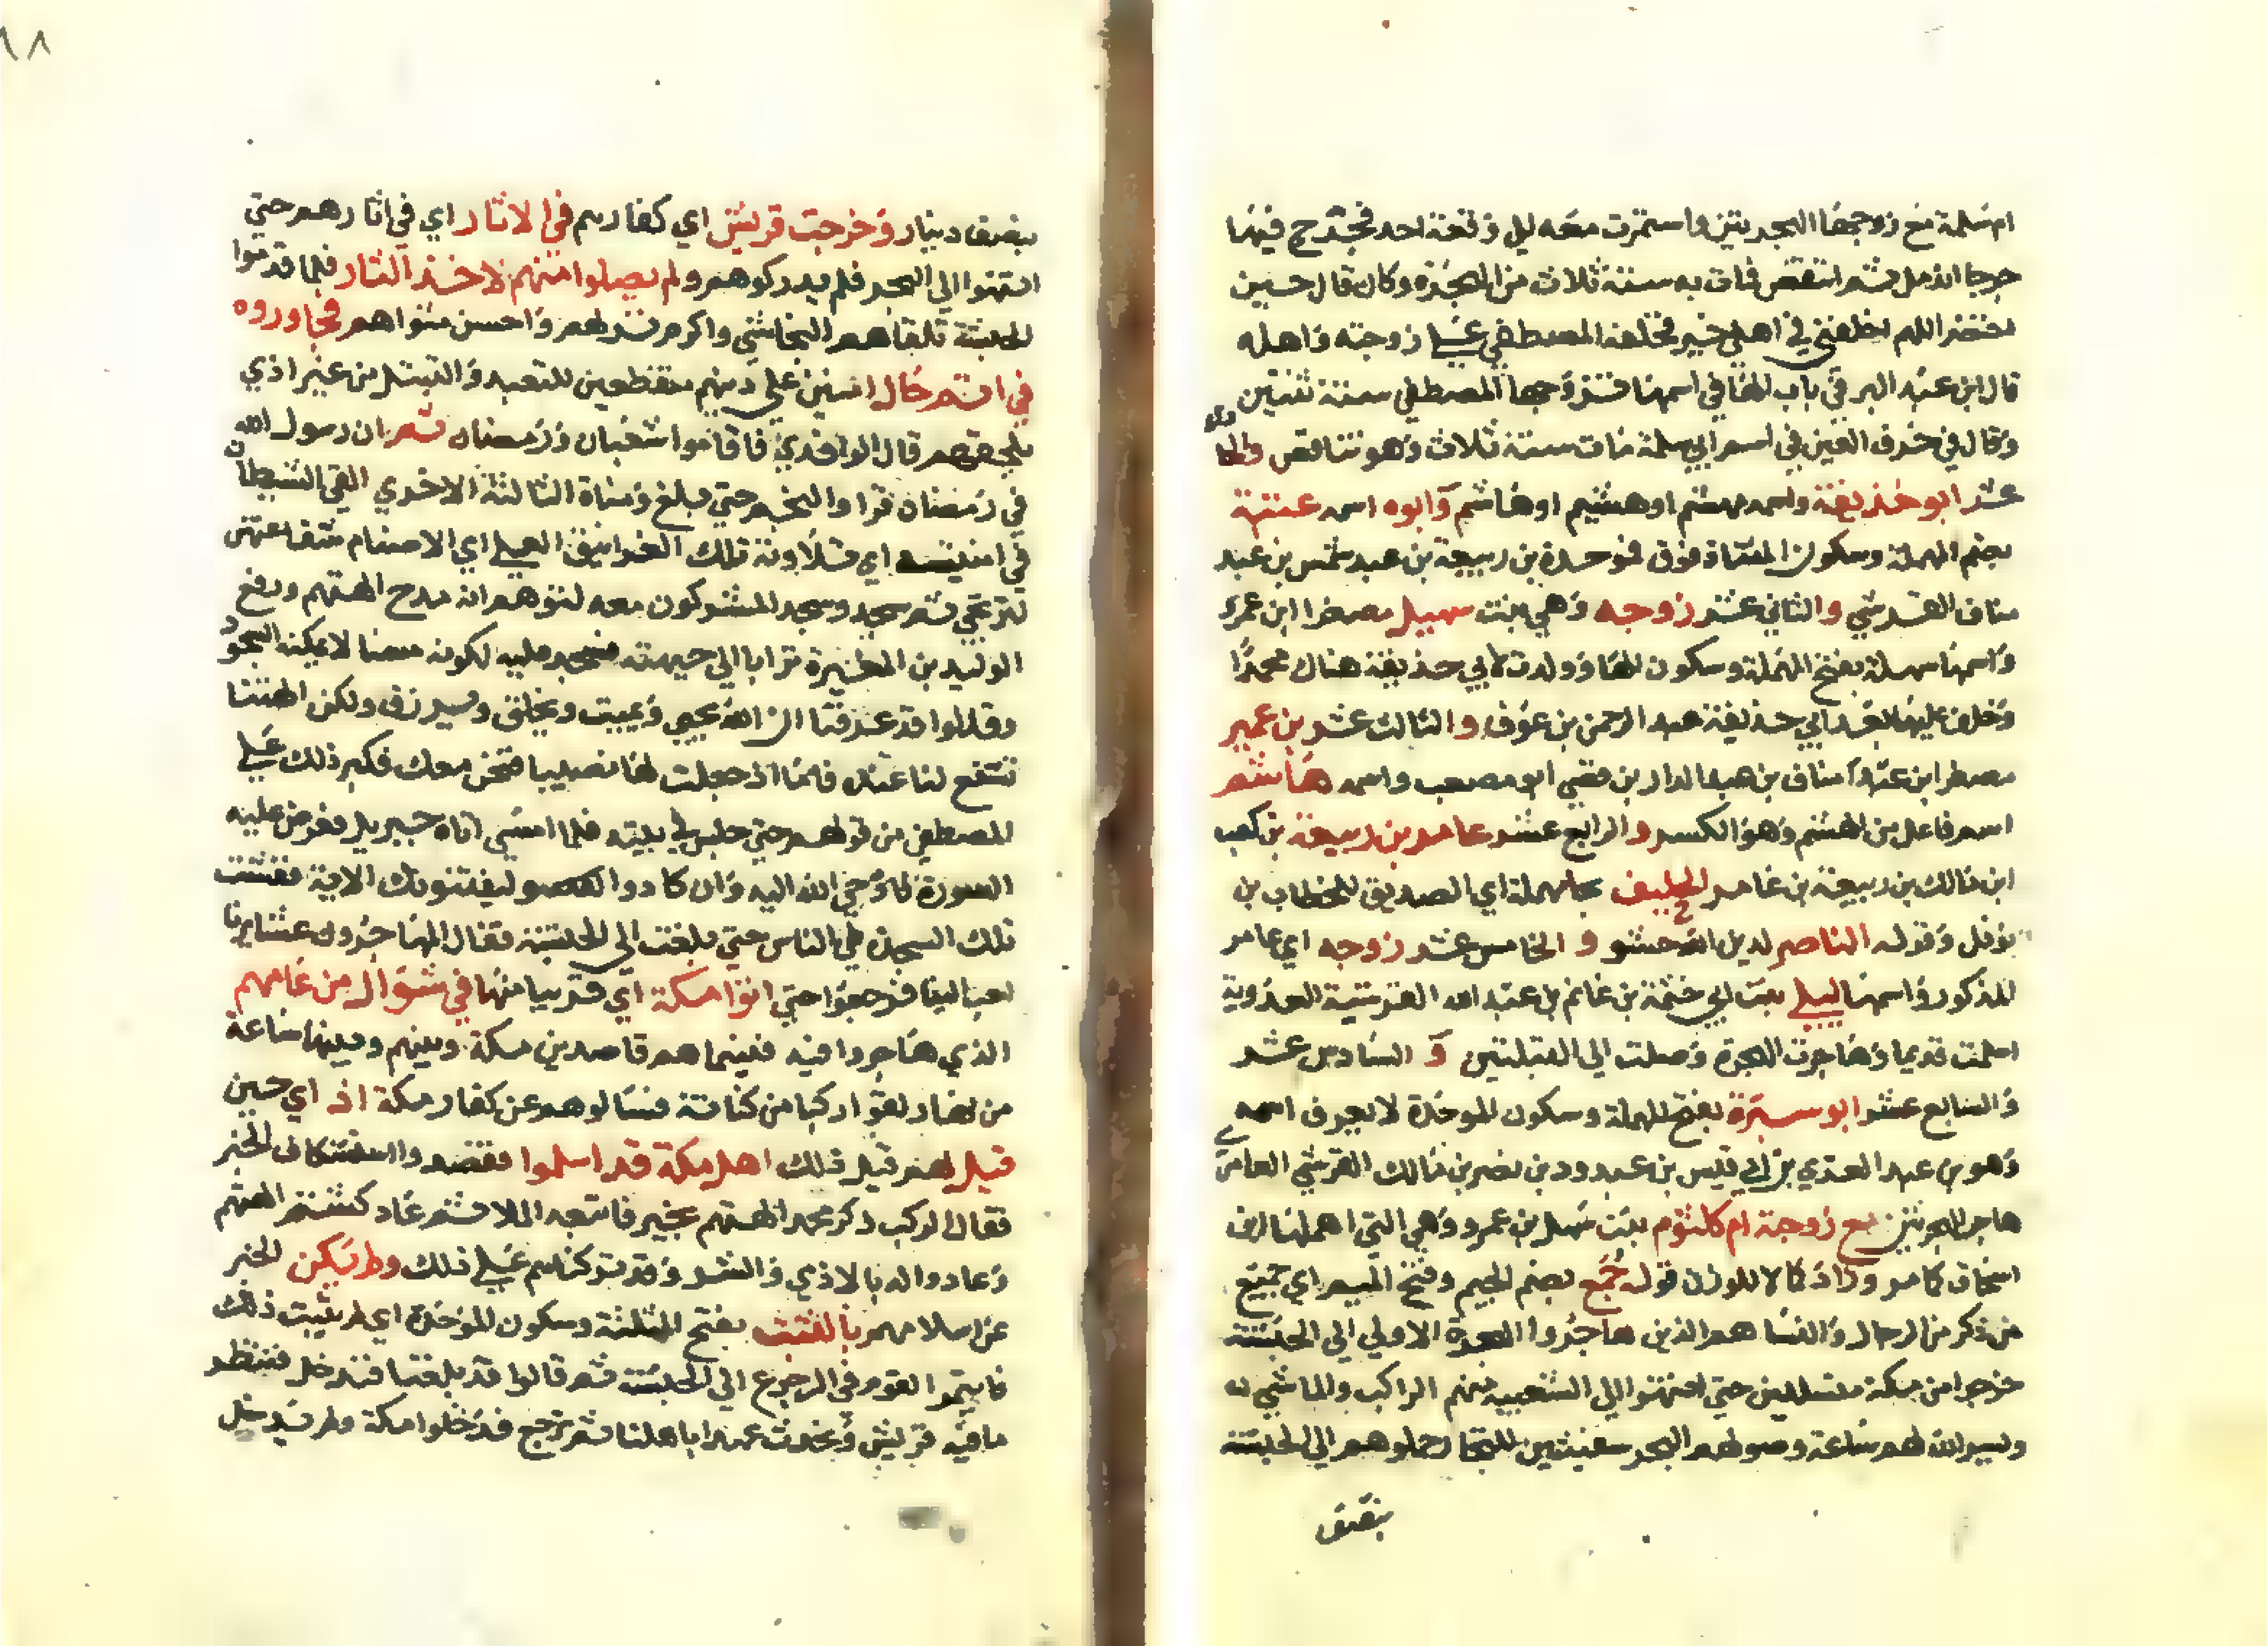 ام سلمة مع زوجها الهجرتين واستمرت معه الي وقعة احد فجرح فيها
جرحا اندمل ثم انتقض فمات به سنة ثلاث من الهجرة وكان قال حين
احتضر اللهم اخلفني في اهلي خير فخلفه المصطفي علي زوجته واهله
قال ابن عبد البر في باب الها في اسمها فتزوجها المصطفي سنة ثنتين
وقال في حرف العين في اسم ابي سلمة مات سنة ثلاث وهو تناقض والحادي
عشر ابو حذيفة واسمه مهشم او هشيم او هاشم وابوه اسمه عتبة
بضم المهملة وسكون المثناة فوق فموحدة بن ربيعة بن عبد شمس بن عبد
مناف القرشي والثاني عشر زوجه وهي بنت سهيل مصغرا ابن عمرو
واسمها سهلة بفتح المهملة وسكون الها وولدت لابي حذيفة هناك محمدًا
وخلف عليها بعد ابي حذيفة عبد الرحمن بن عوف والثالث عشر بن عمير
مصغرا بن عبد مناف بن عبد الدار بن قصي ابو مصعب واسمه هاشم
اسم فاعل من الهشم وهو الكسر والرابع عشر عامر بن ربيعة بن كعب
ابن مالك بن ربيعة بن عامر الحليف بحا مهملة اي الصديق للخطاب بن
نوفل وقوله الناصر لدين الله حشو و الخامس عشر زوجه اي عامر
المذكور واسمها ليلي بنت ابي حثمة بن غانم بن عبد الله القرشية العدوية
اسلمت قديما وهاجرت الهجرة وصلت الي القبلتين و السادس عشر
والسابع عشر ابو سبرة بفتح المهملة وسكون الموحدة لا يعرف اسمه
وهو بن عبد العزي بن ابي قيس بن عبد ود بن نصر بن مالك القرشي العامري
هاجر الهجرتين مع زوجة ام كلثوم بنت سهل بن عمرو وهي التي اهملها ابن
اسحاق كما مر وزاد كالا للوزن قوله جُمَع بضم الجيم وفتح الميم اي جميع
من ذكر من الرجال والنسا هم الذين هاجروا الهجرة الاولي الي الحبشة
خرجوا من مكة متسللين حتي انتهوا الي الشعيبه منهم الراكب والماشي
ويسر الله لهم ساعة وصولهم البحر سفينتين للتجار حملوهم الي الحبشة
بنصف
بنصف دينار وخرجت قريش اي كفارهم في الاثار اي في اثارهم حتي
انتهوا الي البحر فلم يدركوهم ولم يصلوا منهم لاخذ الثار فلما قدموا
الحبشة تلقاهم النجاشي واكرم نزلهم واحسن مثواهم فجاوروه
في اتم حال امنين علي دينهم منقطعين للتعبد والتبتل من غير اذي
يلحقهم قال الواقدي فاقاموا شعبان ورمضان ثم ان رسول الله
في رمضان قرا والنجم حتي بلغ ومناة الثالثة الاخري القي الشيطان
في امنيته اي تلاوته تلك الغرانيق العلي اي الاصنام شفاعتهن
لترتجي ثم سجد وسجد المشركون معه لتوهم انه مدح الهتهم ورفع
الوليد بن المغيرة ترابا الي جبهته فسجد عليه لكونه مسنا لا يمكنه السجود
وقالوا قد عرفنا ان الله يحيي ويميت ويخلق ويرزق ولكن الهتنا
تشفع لنا عنده فاما اذ جعلت لها نصيبا فنحن معك فكبر ذلك علي
المصطفي من قولهم حتي جلس في بيته فلما امسي اتاه جبريل فعرض عليه
السورة فاوحي الله اليه وان كادوا ليفتنونك الاية ففشت
تلك السجدة في الناس حتي بلغت الي الحبشة فقال المهاجرون عشايرنا
احب الينا فرجعوا حتي اتوا مكة اي قريبا منها في شوال من عامهم
الذي هاجروا فيه فبينما هم قاصدين مكة وبينهم وبينها ساعة
من نهار لقوا ركبا من كنانة فسالوهم عن كفار مكة اذ اي حين
قيل لهم قبل ذلك اهل مكة قد اسلموا فقصدوا استكشاف الخبر
فقال الركب ذكر محمد الهتهم بخير فاتبعه الملا ثم عاد كشتم الهتهم
وعادوا له بالاذي والشر وقد تركناهم علي ذلك ولم يكن الخبر
عن اسلامهم بالثبت بفتح المثلثة وسكون الموحدة اي لم يثبت ذلك
فايتمر القوم في الرجوع الي الحبشة ثم قالوا قد بلغنا فندخل فننظر
ما فيه قريش ونحدث عهدا باهلنا ثم نرجع فدخلوا مكة ولم يدخل